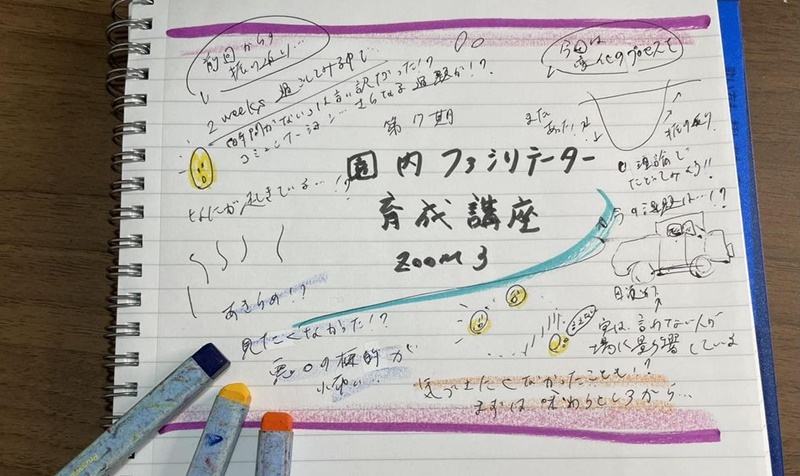 前回からの
振り返り…
2 weeks 過ごしてみる中で…
時間がないは言い訳だった!?
コミュニケーション…さらなる過題が!?
なにが起きている…!?
あきらめ!?
見たくなかった!?
悪口の標的が
小砂い!?
第7期
国内ファシリテーター
育成講座
ZOOM 3
今回は
変化のプロセスを
また
あった!?
振り返り
U理論で
たどってみよう!!
今の課題は…!?
実は、言わない人が
場に影響している
気づきたくなかったことも!?
まずは味わうところから…